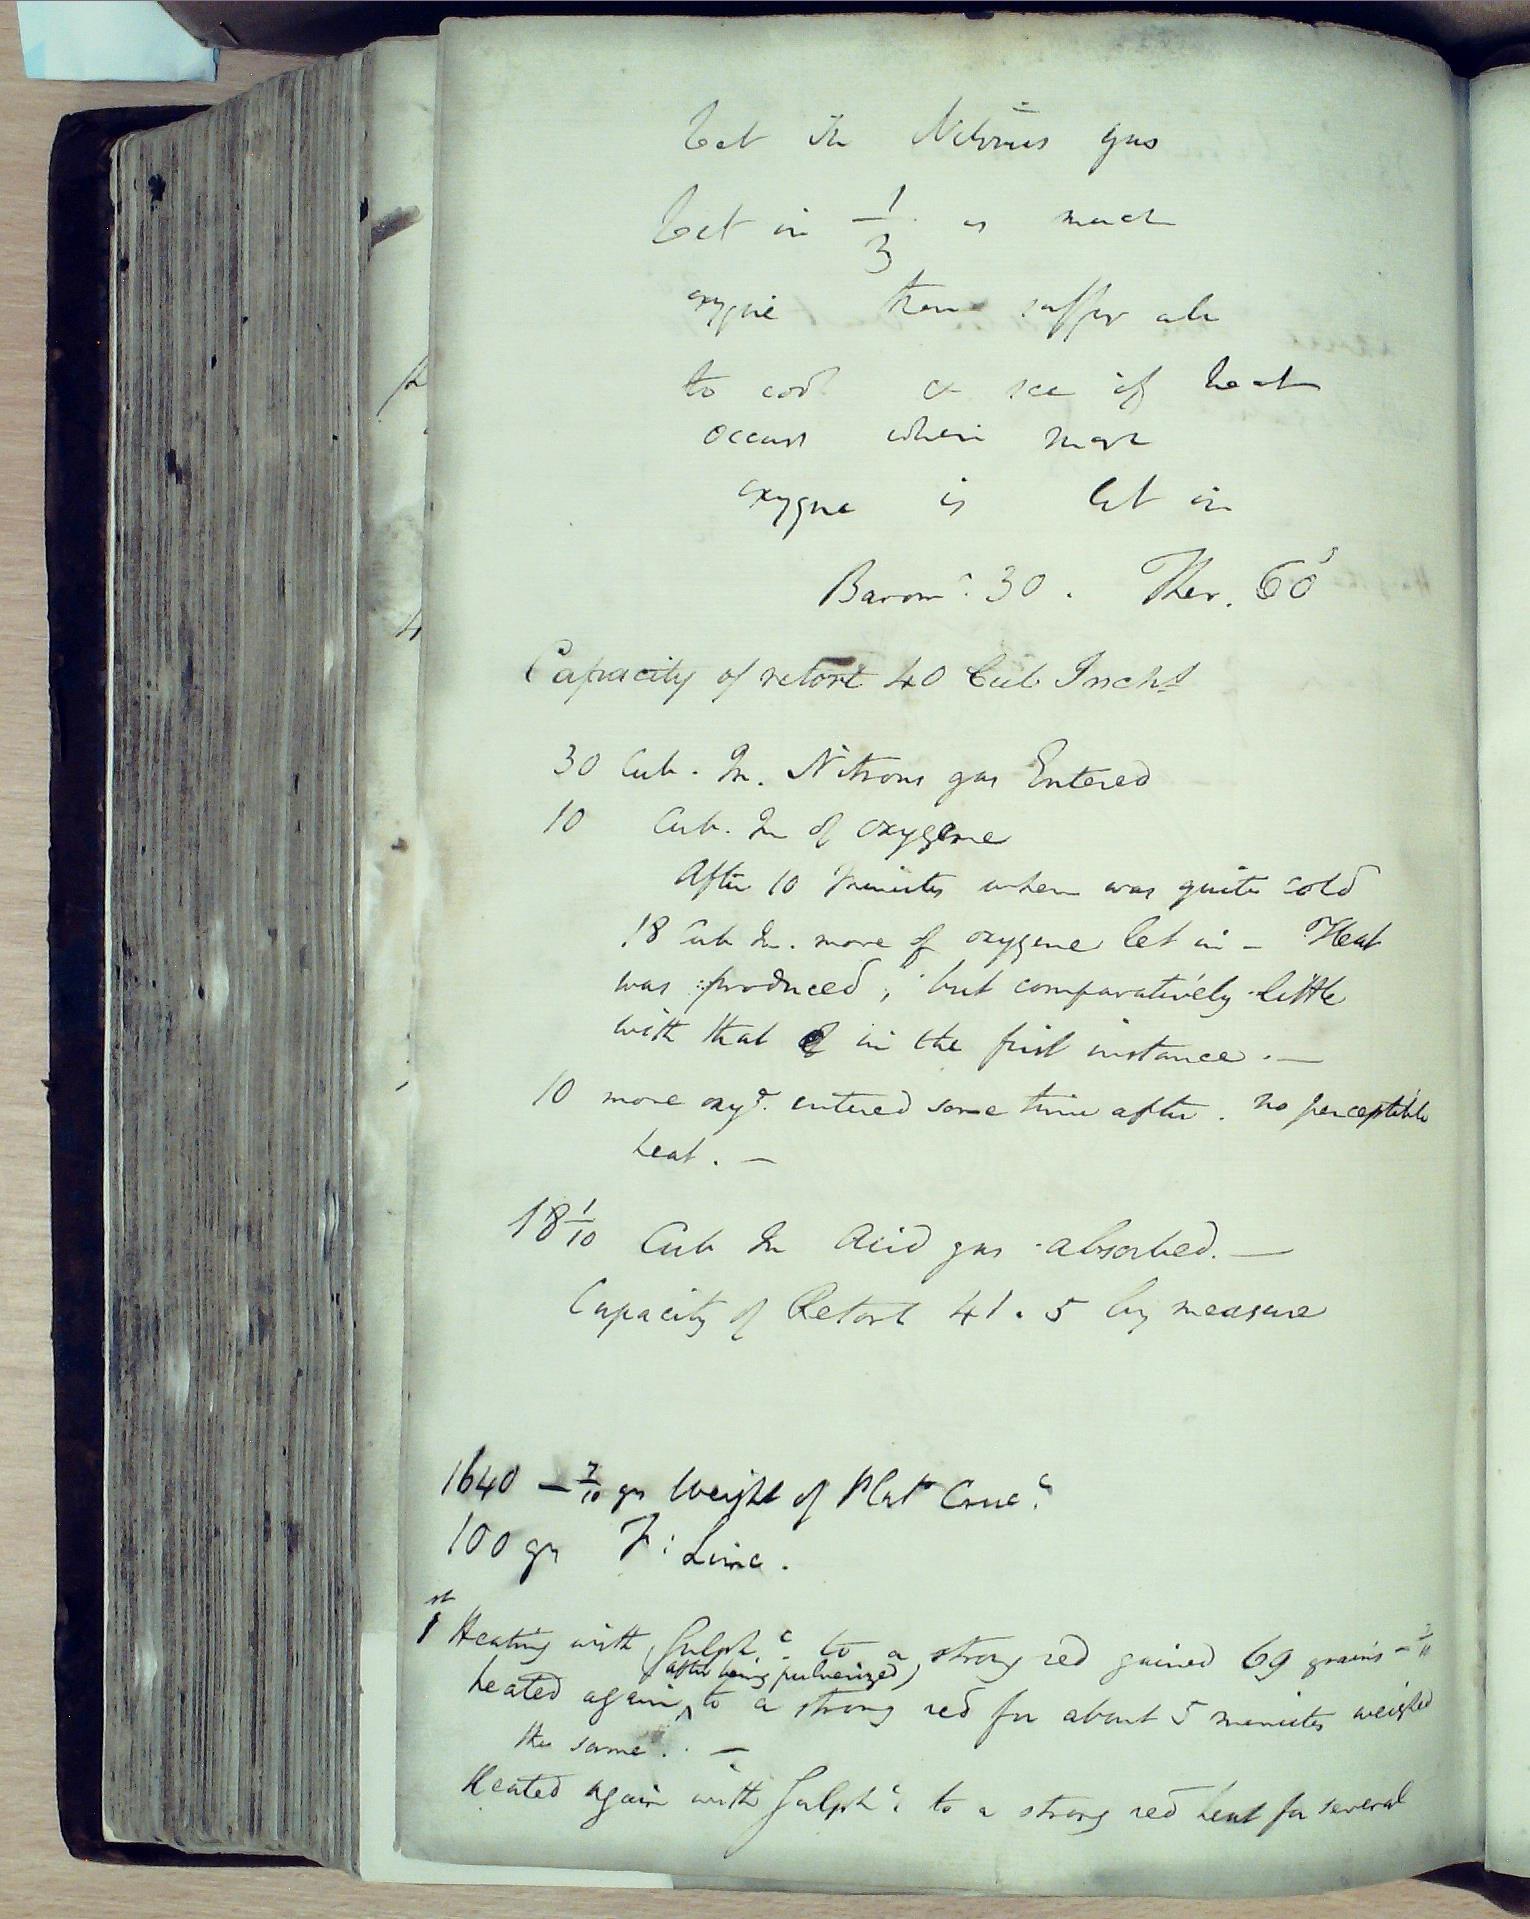 Let in Nitrous gas
Let in 1/3 as much
oxygne then suffer all
to cool & see if heat
occurs when more
oxygne is let in
Barom.r 30. Ther. 60°
Capacity of retort 40 Cub Inchs
30 Cub. In. Nitrous gas Entered
10 Cub. In of oxygene
After 10 Minutes when was quite cold
18 Cub In. more of oxygene let in — Heat
was produced, but comparatively little
with that in the first instance. —
10 more oxye. entered some time after. no perceptible
heat. —
18 1/10 Cub In Acid gas absorbed. —
Capacity of Retort 41.5 by measure
1640 – 7/10 gr Weight of Plat Cruc.
100 gr F: Lime.
1st Heating with Sulphc. to a strong red gained 69 grains –
(after being pulverized)
heated again ^ to a strong red for about 5 minutes weighed
the same. —
Heated again with Sulphc. to a strong red heat for several